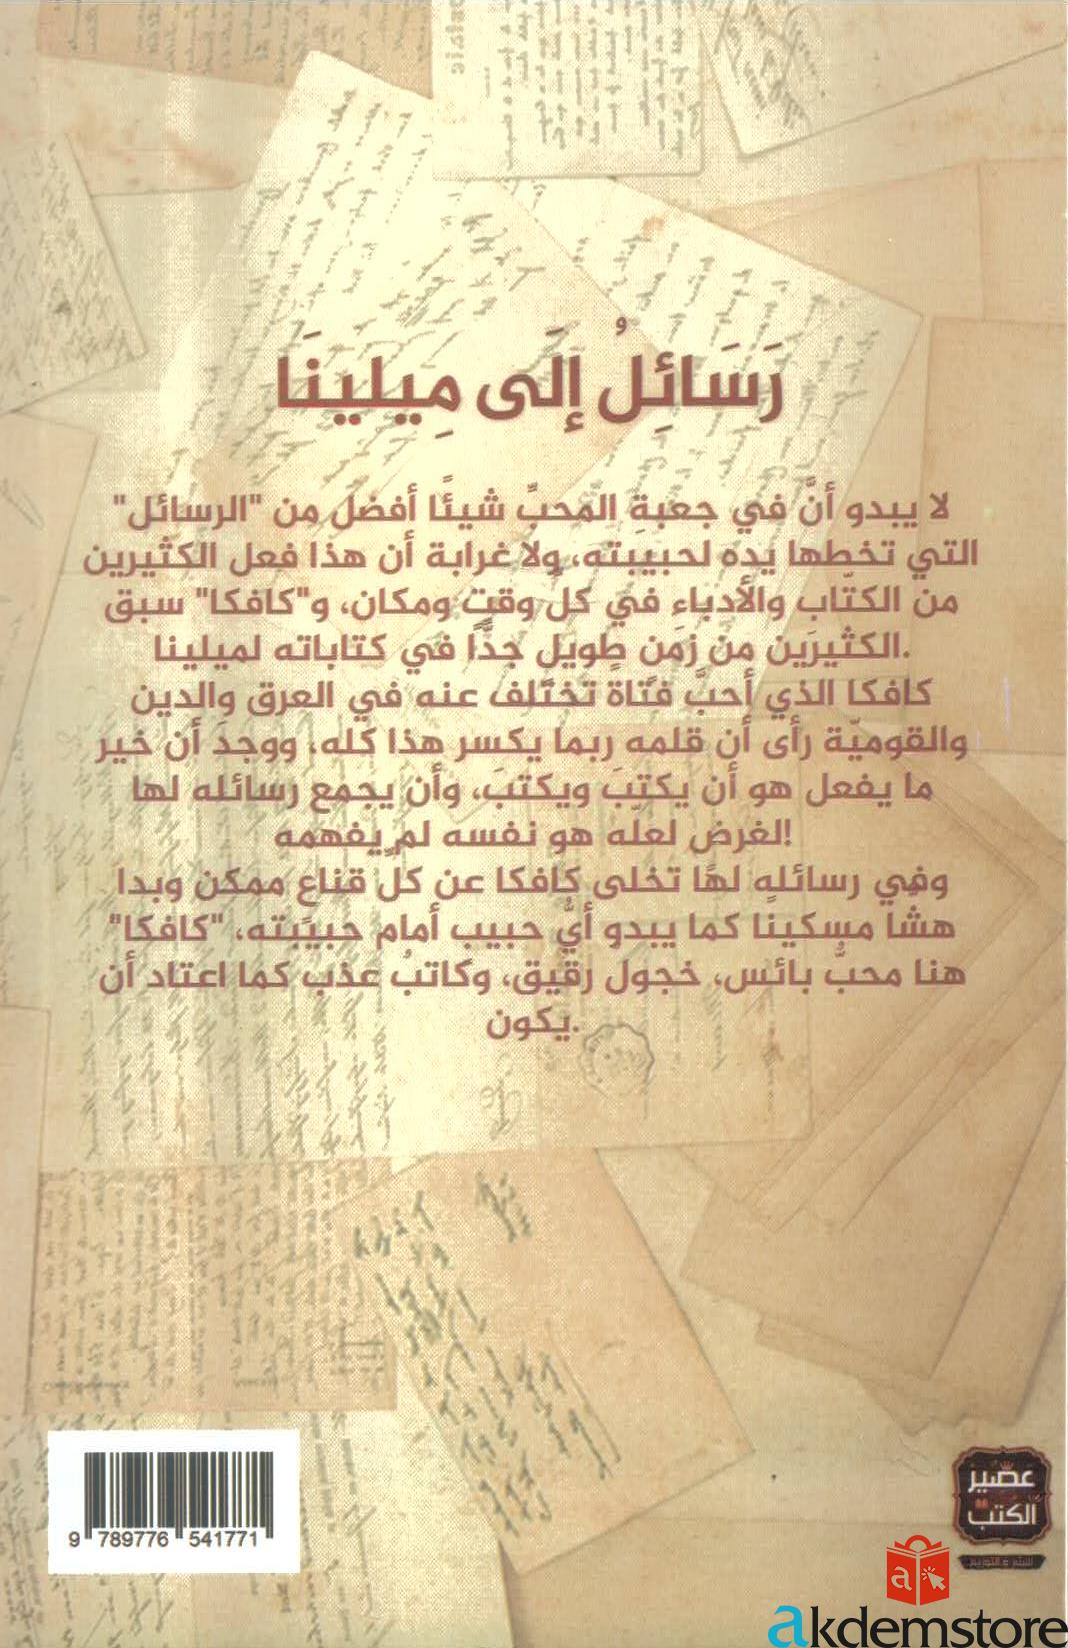 رَسَائِلُ إِلَى مِيلِينَا
لا يبدو أنَّ في جعبةِ المحبِّ شيئًا أفضل من "الرسائل"
التي تخطها يده لحبيبته، ولا غرابة أن هذا فعل الكثيرين
من الكتّاب والأدباءِ في كل وقتٍ ومكان، و"كافكا" سبق
الكثيرَين من زمَن طويلٍ جدًّا في كتاباته لميلينا.
كافكا الذي أحبَّ فتاة تختلف عنه في العرق والدين
والقوميّة رأى أن قلمه ربما يكسر هذا كله، ووجدَ أن خير
ما يفعل هو أن يكتبَ ويكتبَ، وأن يجمع رسائله لها
لغرض لعلّه هو نفسه لم يفهمه!
وفي رسائله لها تخلى كافكا عن كلِّ قناع ممكن وبدا
هشًا مسكينًا كما يبدو أيُّ حبيب أمام حبيبته، "كافكا"
هنا محبٌّ بائس، خجول رقيق، وكاتبُ عذب كما اعتاد أن
يكون.
9 789776 541771
عصير
الكتب
للنشر والتوزيع
a
akdemstore